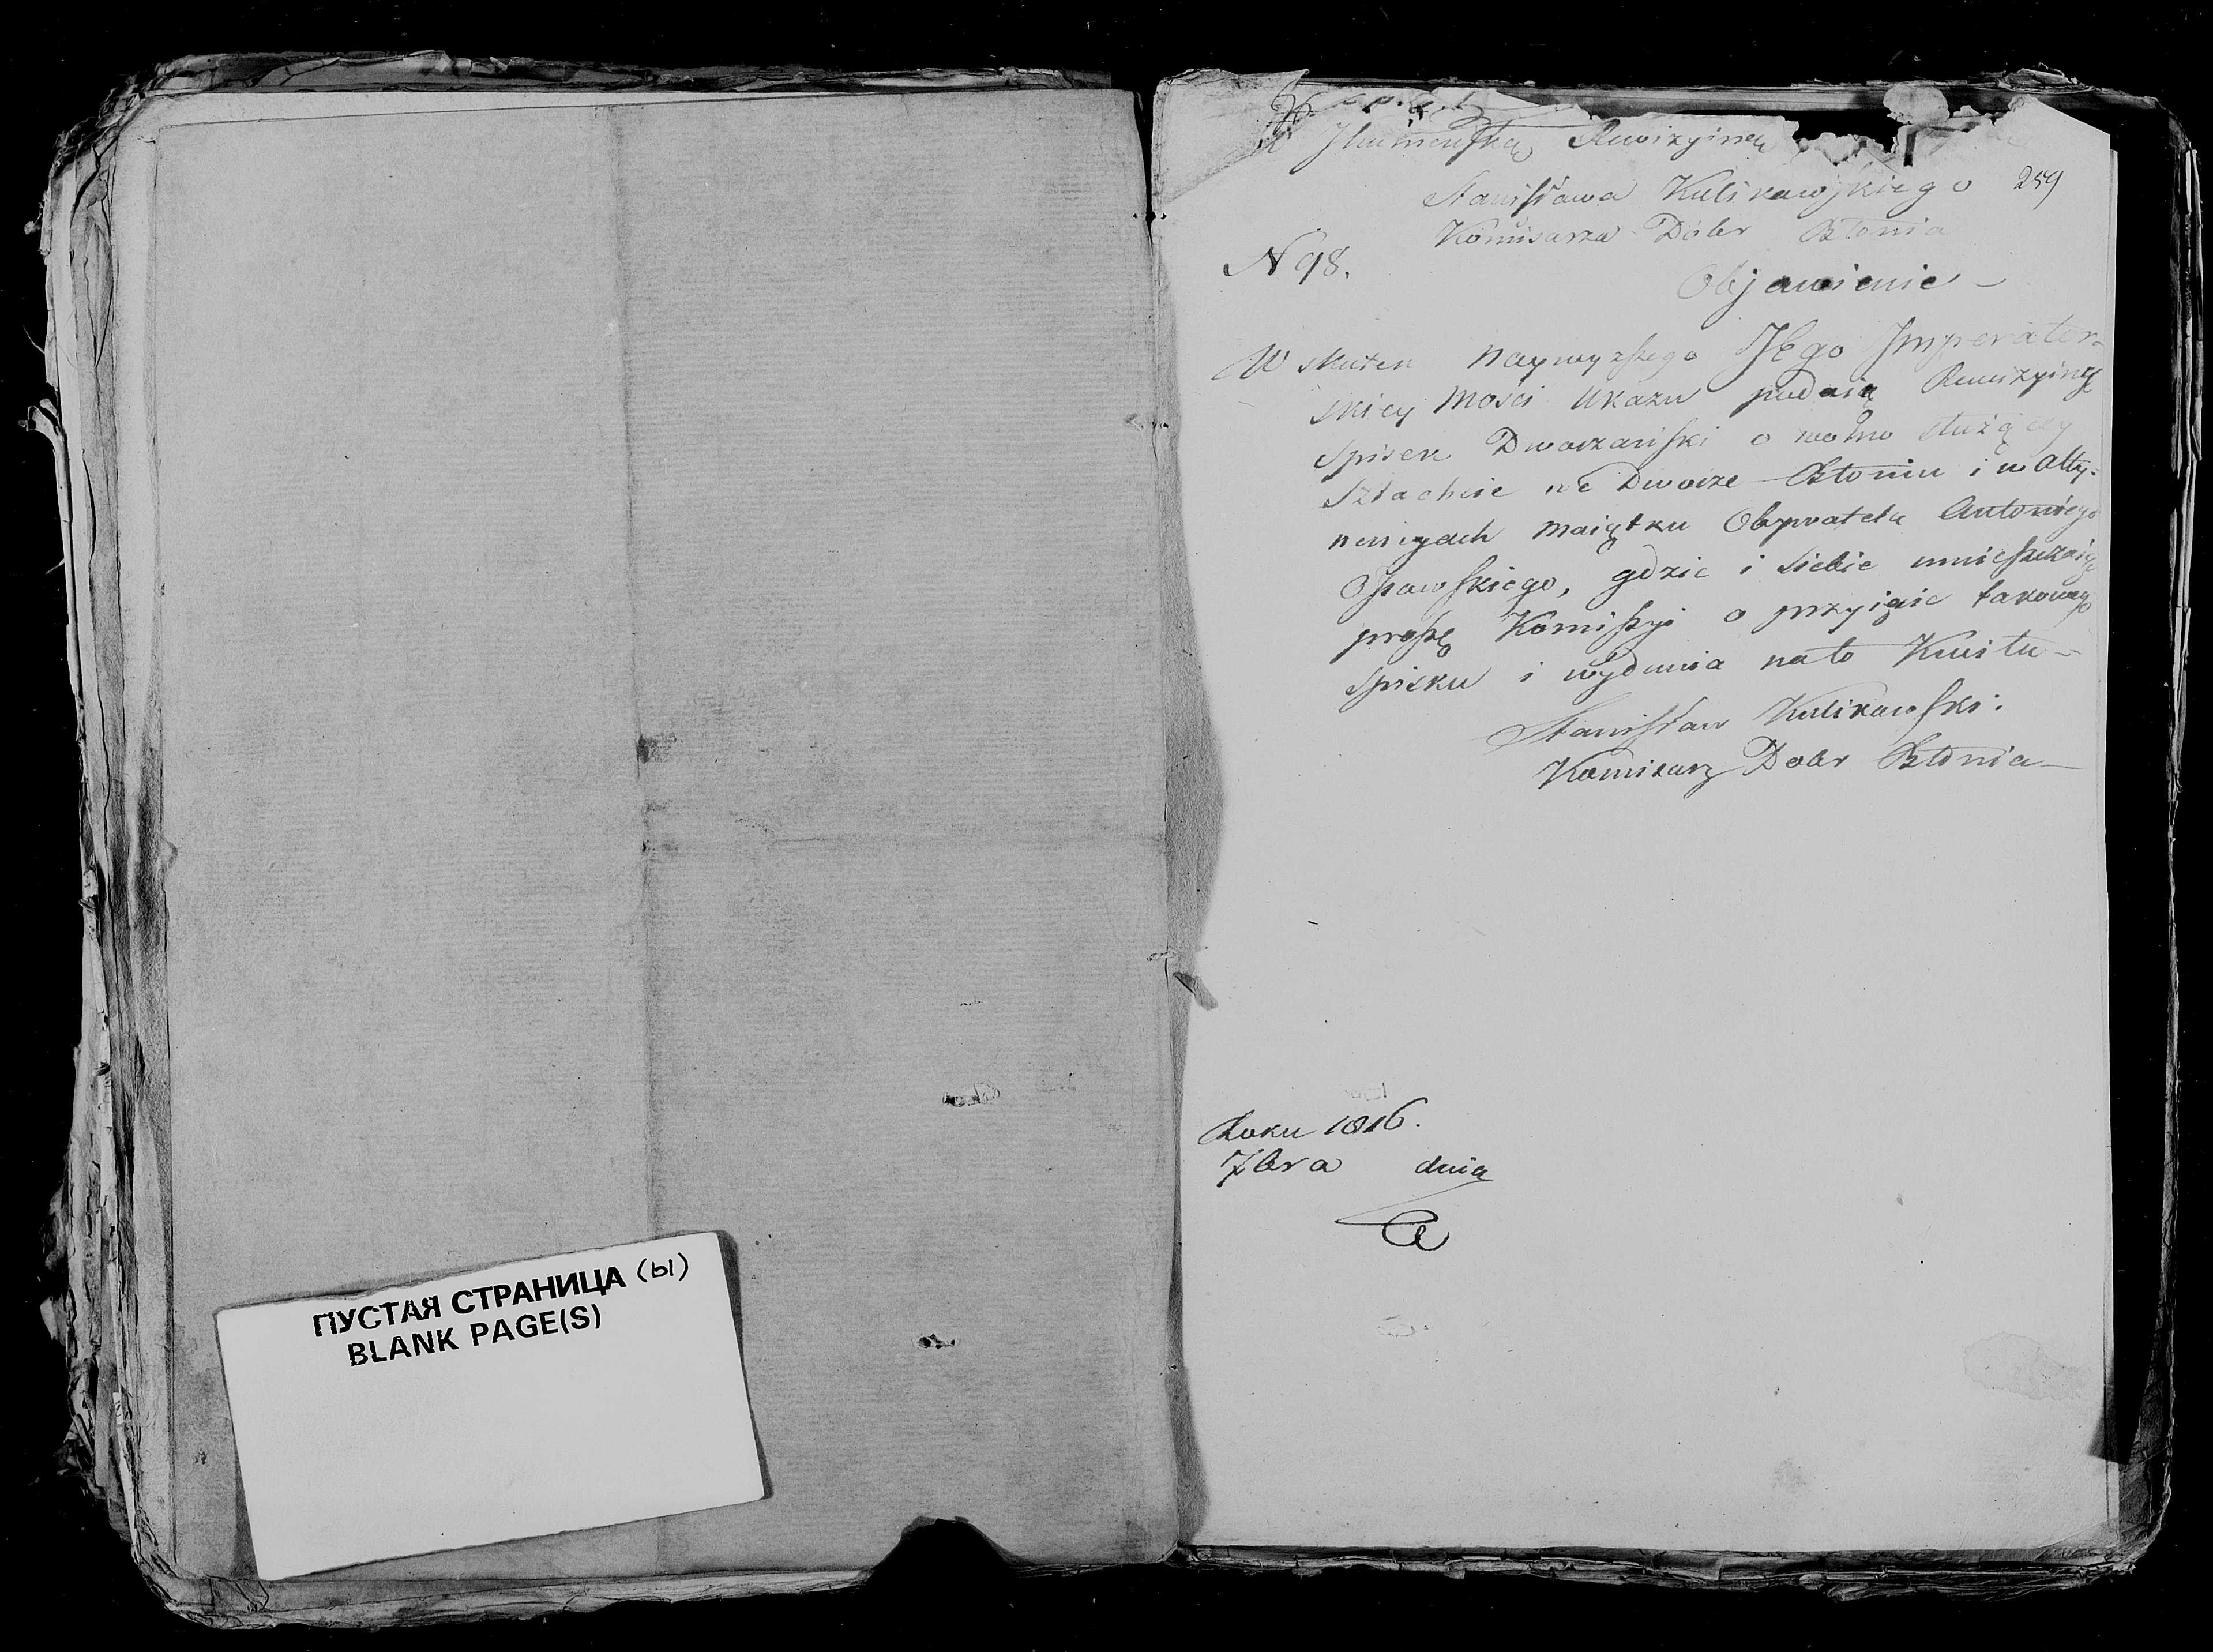 ПУСТАЯ СТРАНИЦА (ы)
BLANK PAGE(S)
W Jhumeńską Rewizyiną
259
Stanisława Kulikowskiego
Komisarza Dobr Błonia
N 98.
Objawienie –
W skutek naywyzszego JEgo Imperator-
skiey Mosci Ukazu podaią Rewizyiny
Spisek Dworzanski o wolno służącey
Szlachcie we Dworze Błoniu i w
maiątku Obywatela Antoniego
Ossowskiego, gdzie i siebie umieszczaię
proszę Komissyi o przyięcie takowego
Spisku i wydania na to Kwitu –
Stanisław Kulikowski.
Komisarz Dobr Błonia –
Roku 1816.
7bra dnia